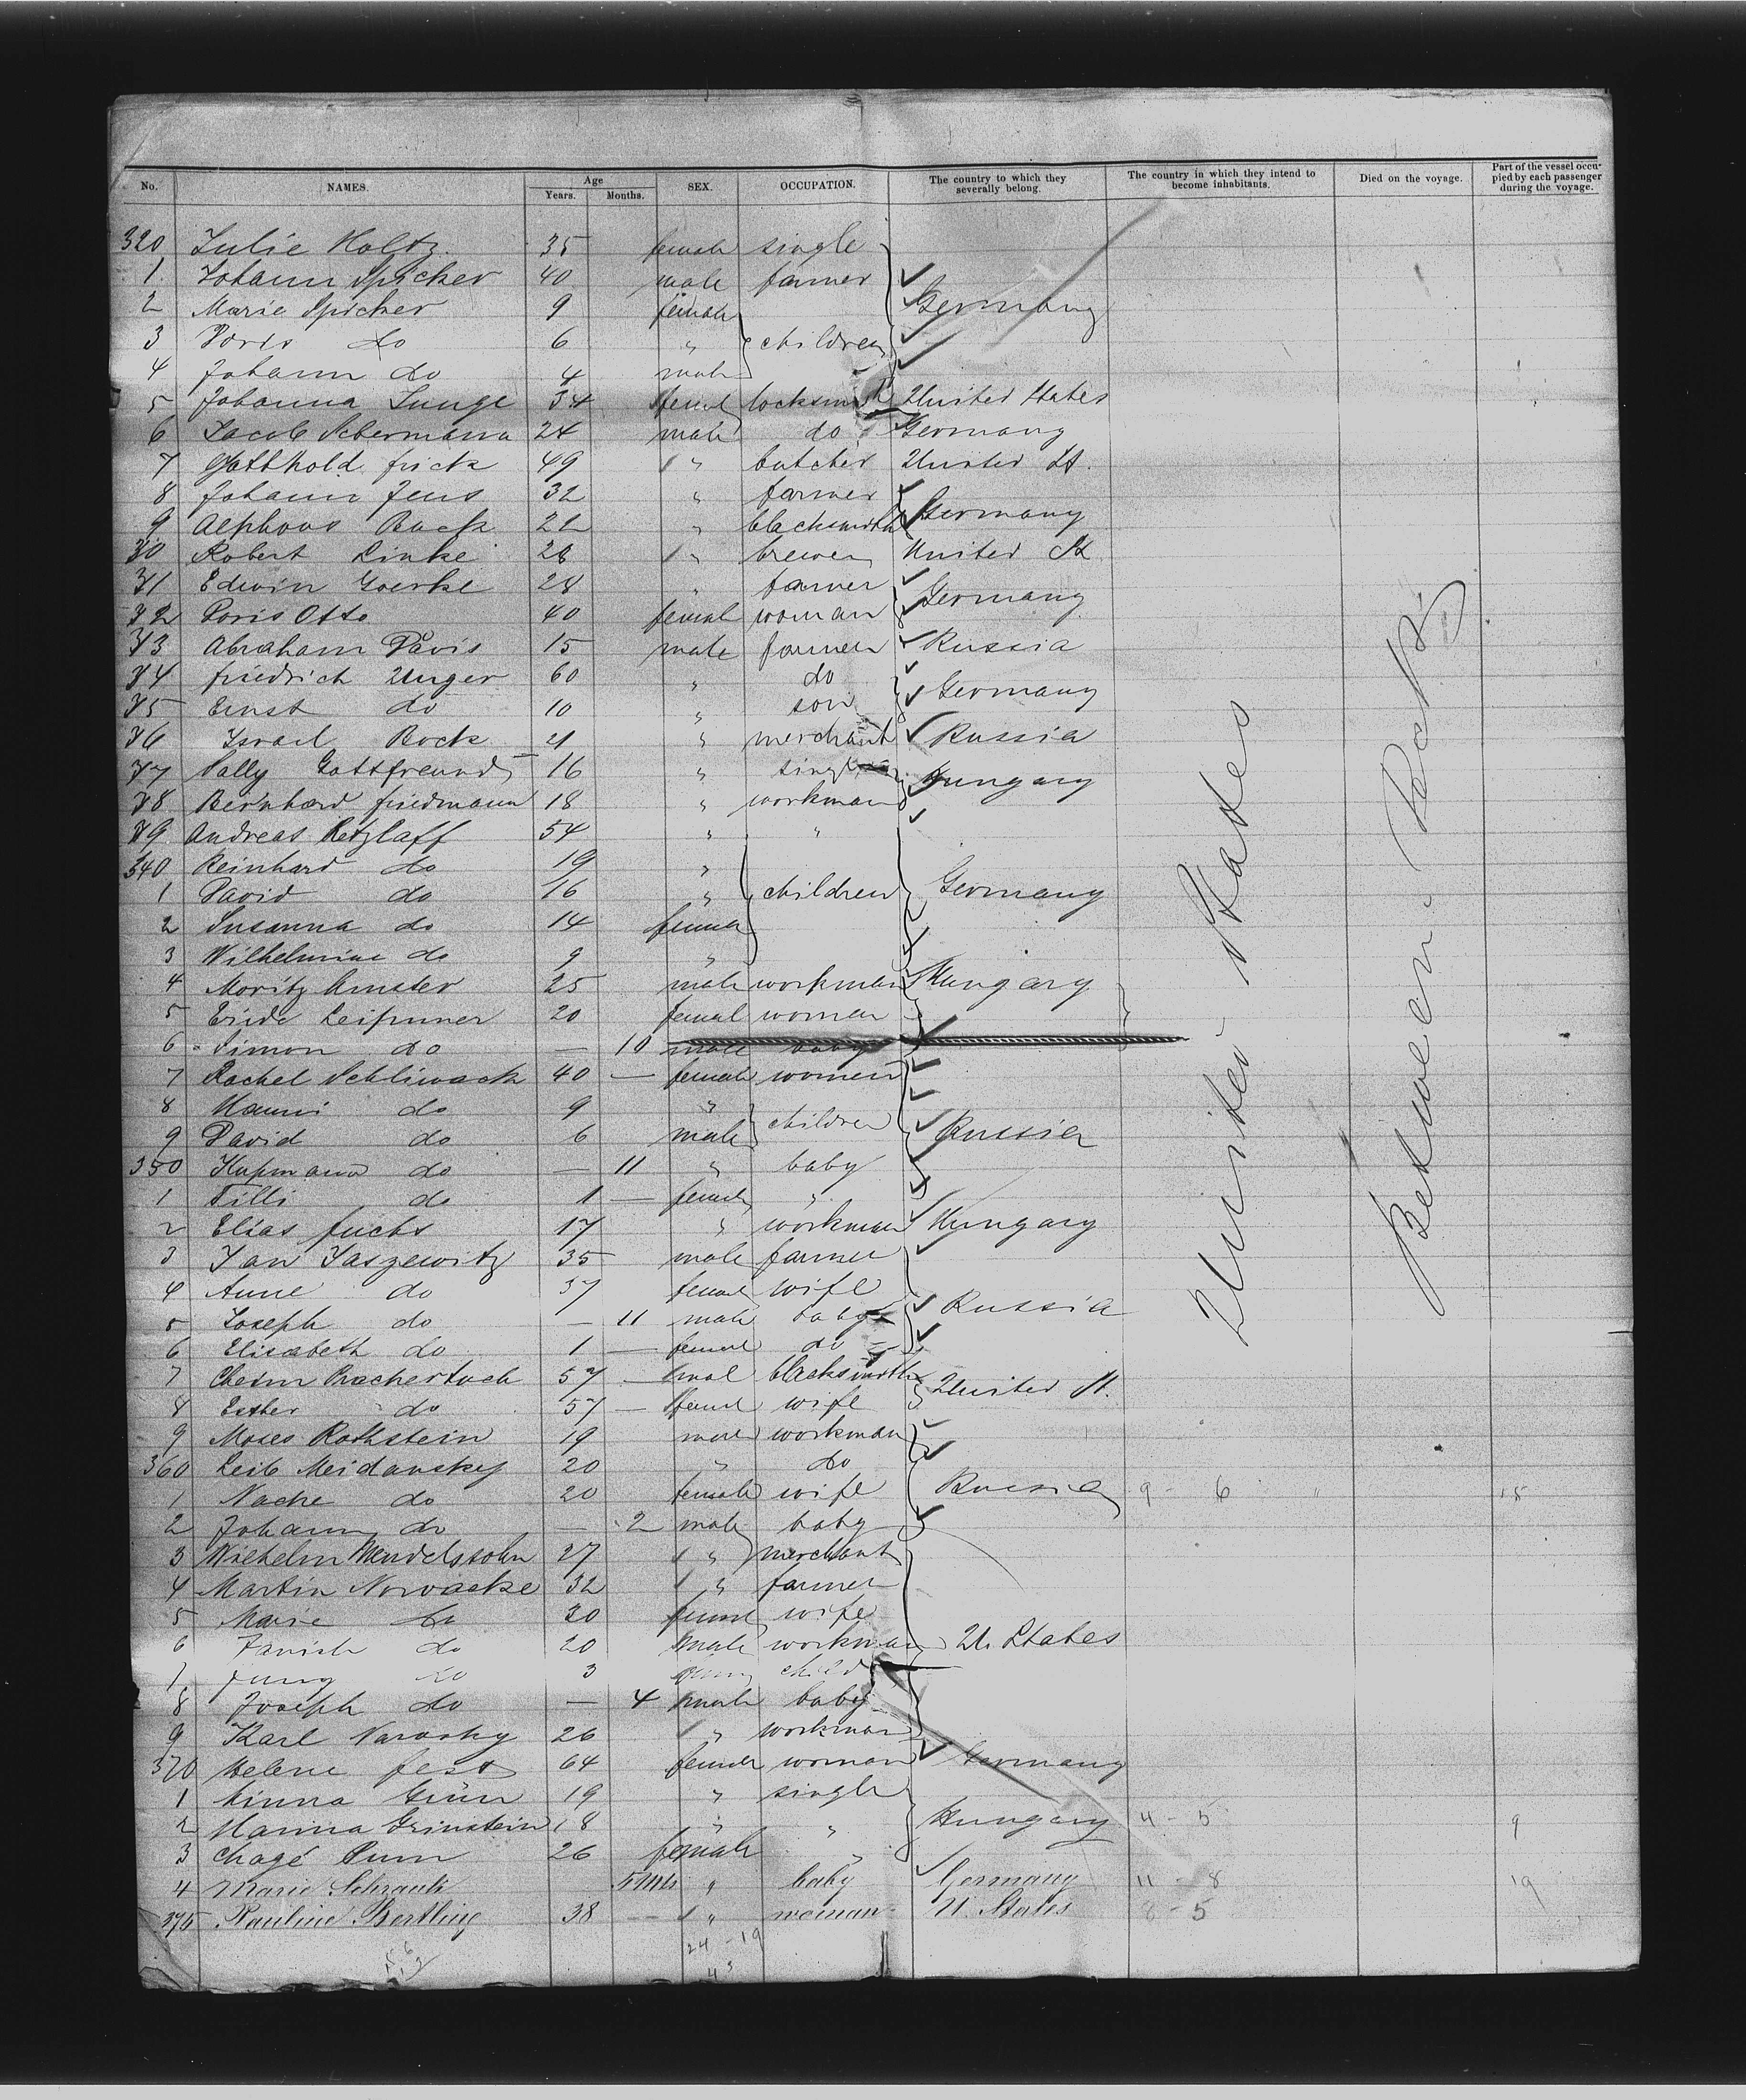 No. NAMES. Age Years. Months. SEX. OCCUPATION. The country to which they severally belong. The country in which they intend to become inhabitants. Died on the voyage. Part of the vessel occupied by each passenger during the voyage.
320 Julie Holtz 35 female single
1 Johann Spicker 40 male farmer
2 Marie Spicker 9 female Germany
3 Doris do 6 " children
4 Johann do 4 male
5 Johanna Lunge 34 female locksmith United States
6 Jacob 24 male do Germany
7 Gotthold Frick 49 " butcher United St.
8 Johann Jens 32 " farmer
9 Alphons Back 22 " blacksmith Germany
30 Robert Linke 28 " brewer United St
31 Edwin Goerke 28 " farmer
32 Doris Otto 40 female woman Germany
33 Abraham Davis 15 male farmer Russia
34 Friedrich Unger 60 " do
35 Ernst do 10 " son Germany
36 Israel Bock 21 " merchant Russia
37 Sally Gottfreund 16 " single Hungary
38 Bernhard Friedmann 18 " workman
39 Andreas Retzlaff 54 " "
340 Reinhard do 19 "
1 David do 16 " children Germany
2 Susanna do 14 female
3 Wilhelmine do 9 "
4 Moritz 25 male workman Hungary
5 20 female women
6 Simon do — 10 male baby
7 Rachel Schliwack 40 — female women
8 Hanni do 9 " children
9 David do 6 male Russia
350 do — 11 " baby
1 Tilli do 1 — female "
2 Elias Fuchs 17 " workman Hungary
3 Jan Jaszewitz 35 male farmer
4 Anne do 37 female wife
5 Joseph do — 11 male baby Russia
6 Elisabeth do 1 — female do
7 57 — mal blacksmith United St.
8 Esther do 57 — femal wife
9 Moses Rothstein 19 male workman
360 Leib Meidansky 20 " do
1 Nache do 20 female wife Russia 9 - 6 " 15
2 Johann do — 2 male baby
3 Wilhelm Mendelssohn 27 " merchant
4 Martin Nowacke 32 " farmer
5 Marie do 30 female wife
6 do 20 male workman U. States
7 Jung do 3 child
8 Joseph do — 4 male baby
9 Karl 26 " workman
370 Helene Fest 64 female woman Germany
1 Minna Grün 19 " single
2 Hanna Grinstein 18 " " Hungary 4 - 5 9
3 Chagé 26 female "
4 Marie 5 Mts " baby Germany 11 - 8 19
375 Pauline Bertling 38 — " woman U. States 8 - 5
24 - 19
43
United States
Between Deck